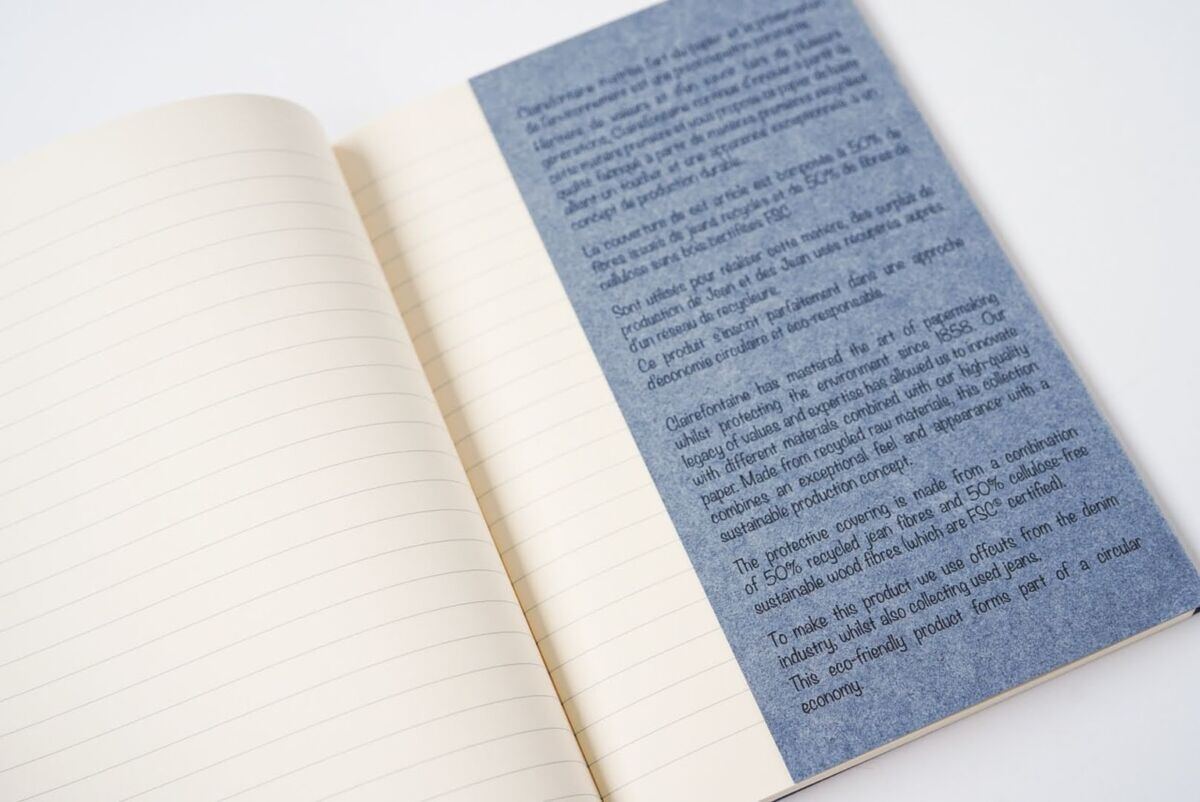 Clairefontaine maîtrise l'art du papier et la préservation
de l'environnement est une préoccupation constante.
Héritière de valeurs et d'un savoir faire de plusieurs
générations, Clairefontaine continue d'innover à partir de
cette matière première et vous propose ce papier de haute
qualité fabriqué à partir de matières premières recyclées
alliant un toucher et une apparence exceptionnels à un
concept de production durable.
La couverture de cet article est composée à 50% de
fibres issues de jeans recyclés et de 50% de fibres de
cellulose sans bois certifiées FSC.
Sont utilisés pour réaliser cette matière, des surplus de
production de Jean et des Jean usés récupérés auprès
d'un réseau de recycleurs.
Ce produit s'inscrit parfaitement dans une approche
d'économie circulaire et éco-responsable.
Clairefontaine has mastered the art of papermaking
whilst protecting the environment since 1858. Our
legacy of values and expertise has allowed us to innovate
with different materials combined with our high-quality
paper. Made from recycled raw materials, this collection
combines an exceptional feel and appearance with a
sustainable production concept.
The protective covering is made from a combination
of 50% recycled jean fibres and 50% cellulose-free
sustainable wood fibres (which are FSC® certified).
To make this product we use offcuts from the denim
industry, whilst also collecting used jeans.
This eco-friendly product forms part of a circular
economy.